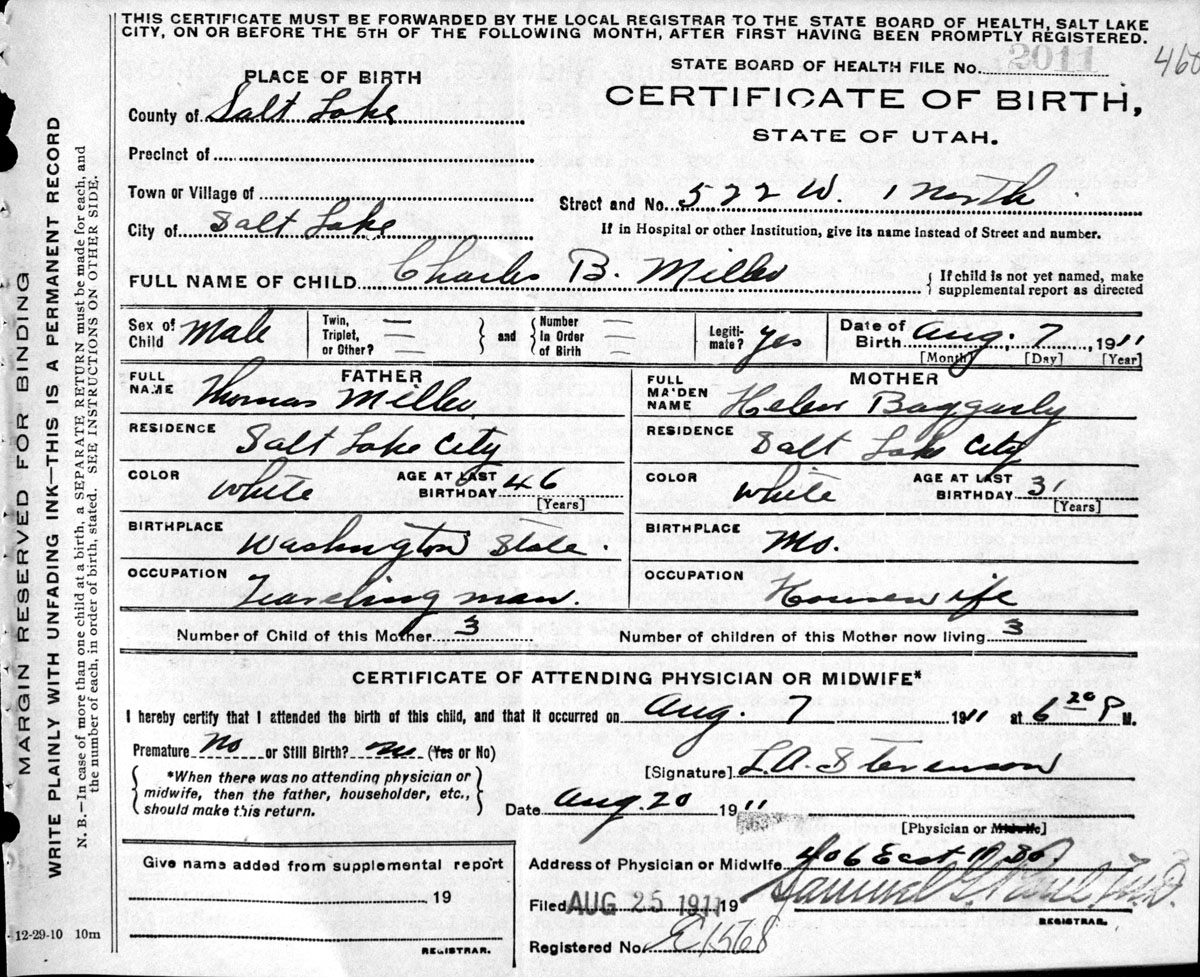 THIS CERTIFICATE MUST BE FORWARDED BY THE LOCAL REGISTRAR TO THE STATE BOARD OF HEALTH, SALT LAKE
CITY, ON OR BEFORE THE 5TH OF THE FOLLOWING MONTH, AFTER FIRST HAVING BEEN PROMPTLY REGISTERED.
STATE BOARD OF HEALTH FILE No. 2011
460
PLACE OF BIRTH
CERTIFICATE OF BIRTH,
STATE OF UTAH.
County of Salt Lake
Precinct of
Town or Village of
Street and No. 522 W. 1 North
City of Salt Lake
If in Hospital or other Institution, give its name instead of Street and number.
FULL NAME OF CHILD Charles B. Miller
{If child is not yet named, make
supplemental report as directed
Sex of Child Male
Twin, Triplet, or Other? —
} and {
Number In Order of Birth
Legiti-mate? yes
Date of Birth Aug. 7, 1911
[Month] [Day] [Year]
FATHER
FULL NAME Thomas Miller
MOTHER
FULL MAIDEN NAME Helen Baggarly
RESIDENCE Salt Lake City
RESIDENCE Salt Lake City
COLOR White
AGE AT LAST BIRTHDAY 46
[Years]
COLOR White
AGE AT LAST BIRTHDAY 31
[Years]
BIRTHPLACE Washington State.
BIRTHPLACE Mo.
OCCUPATION Traveling man.
OCCUPATION Housewife
Number of Child of this Mother 3
Number of children of this Mother now living 3
CERTIFICATE OF ATTENDING PHYSICIAN OR MIDWIFE*
I hereby certify that I attended the birth of this child, and that it occurred on Aug. 7 1911 at 6 20 P M.
Premature No or Still Birth? no (Yes or No)
{*When there was no attending physician or
midwife, then the father, householder, etc.,
should make this return.}
[Signature] L.A. Stevenson
Date Aug. 20 1911
[Physician or Midwife]
Give name added from supplemental report
19
REGISTRAR.
Address of Physician or Midwife 406 East So.
Filed AUG 25 1911 19
Samuel G. Paul, M.D.
REGISTRAR.
Registered No. 1568
- 12-29-10 10m
MARGIN RESERVED FOR BINDING
WRITE PLAINLY WITH UNFADING INK—THIS IS A PERMANENT RECORD
N. B.—In case of more than one child at a birth, a SEPARATE RETURN must be made for each, and
the number of each, in order of birth, stated. SEE INSTRUCTIONS ON OTHER SIDE.